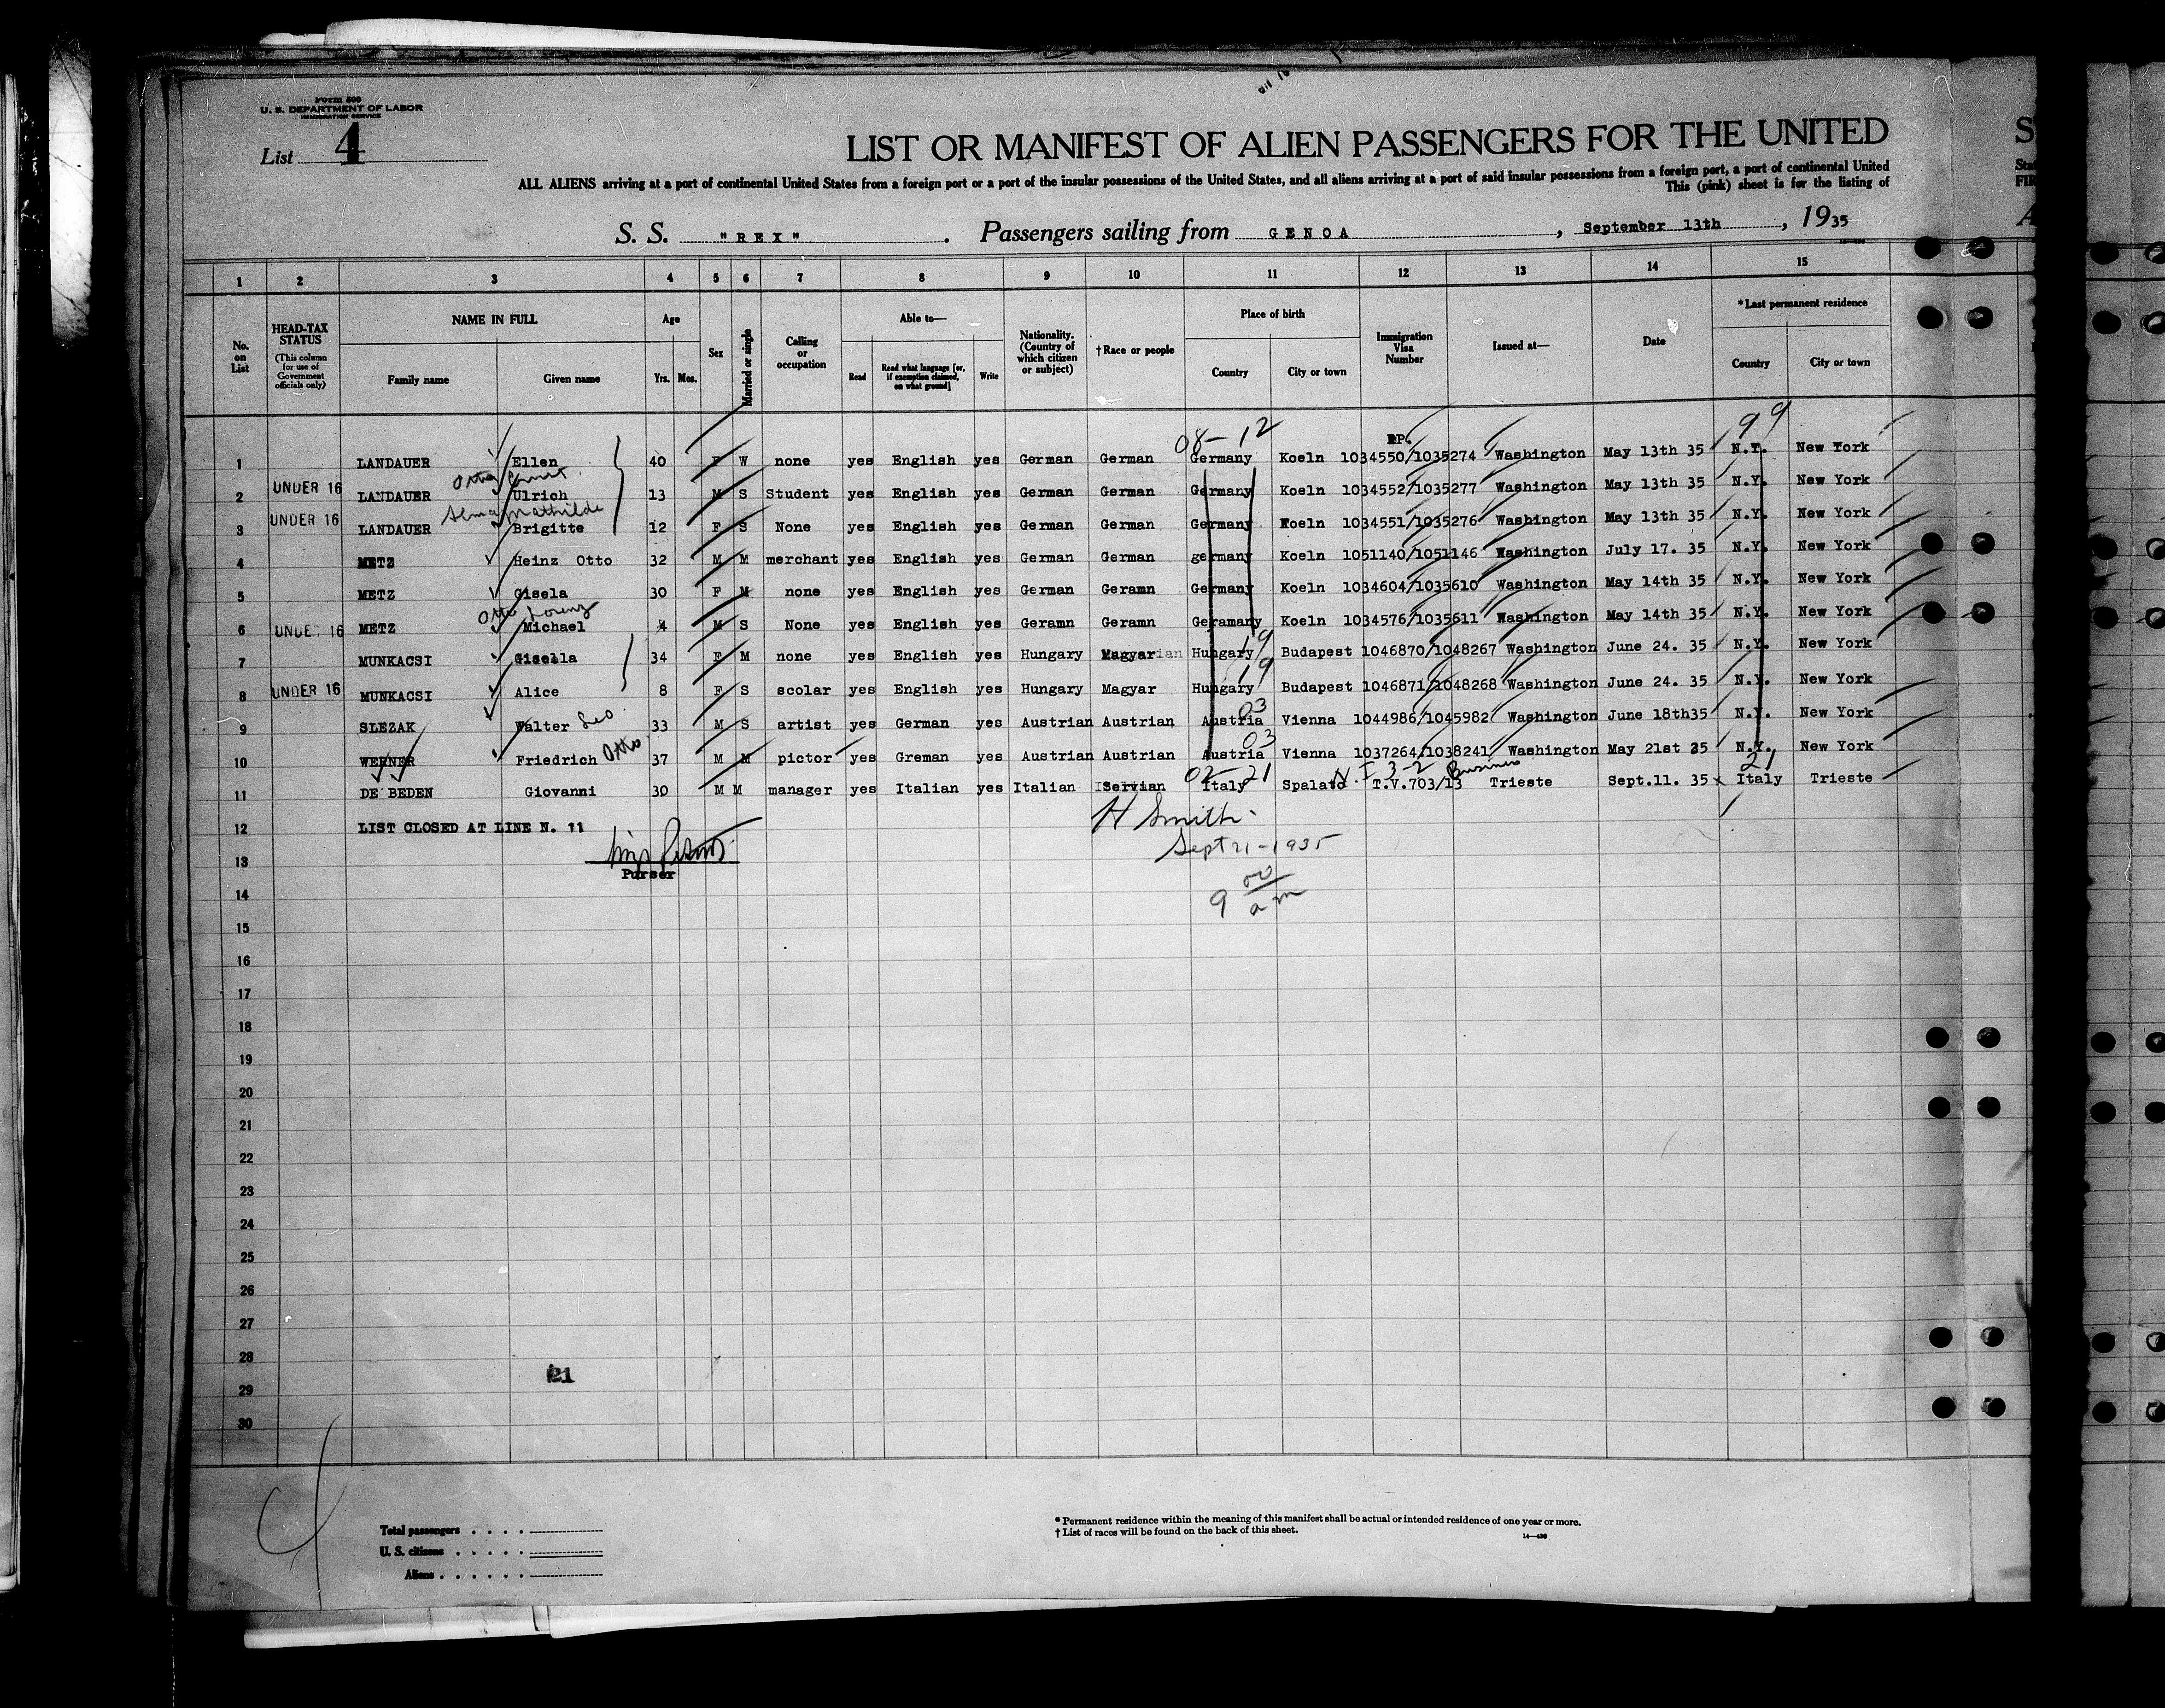 Form 500
U. S. DEPARTMENT OF LABOR
IMMIGRATION SERVICE
List 4
LIST OR MANIFEST OF ALIEN PASSENGERS FOR THE UNITED
ALL ALIENS arriving at a port of continental United States from a foreign port or a port of the insular possessions of the United States, and all aliens arriving at a port of said insular possessions from a foreign port, a port of continental United
This (pink) sheet is for the listing of
S. S. "REX" . Passengers sailing from GENOA , September 13th , 1935
1 2 3 4 5 6 7 8 9 10 11 12 13 14 15
No. on List HEAD-TAX STATUS (This column for use of Government officials only) NAME IN FULL Family name Given name Age Yrs. Mos. Sex Married or single Calling or occupation Able to— Read Read what language [or, if exemption claimed, on what ground] Write Nationality. (Country of which citizen or subject) †Race or people Place of birth Country City or town Immigration Visa Number Issued at— Date *Last permanent residence Country City or town
08-12 99
1 LANDAUER Ellen 40 F W none yes English yes German German Germany Koeln 1034550/1035274 Washington May 13th 35 N.Y. New York
Otto
2 UNDER 16 LANDAUER Ulrich 13 M S Student yes English yes German German Germany Koeln 1034552/1035277 Washington May 13th 35 N.Y. New York
Alma Mathilde
3 UNDER 16 LANDAUER Brigitte 12 F S None yes English yes German German Germany Koeln 1034551/1035276 Washington May 13th 35 N.Y. New York
4 METZ Heinz Otto 32 M M merchant yes English yes German German germany Koeln 1051140/1051146 Washington July 17. 35 N.Y. New York
5 METZ Gisela 30 F M none yes English yes German Geramn Germany Koeln 1034604/1035610 Washington May 14th 35 N.Y. New York
Otto Lorenz
6 UNDER 16 METZ Michael 4 M S None yes English yes Geramn Geramn Geramany Koeln 1034576/1035611 Washington May 14th 35 N.Y. New York
7 MUNKACSI Gisella 34 F M none yes English yes Hungary Magyarian Hungary 19 Budapest 1046870/1048267 Washington June 24. 35 N.Y. New York
8 UNDER 16 MUNKACSI Alice 8 F S scolar yes English yes Hungary Magyar Hungary 19 Budapest 1046871/1048268 Washington June 24. 35 N.Y. New York
9 SLEZAK Walter Leo 33 M S artist yes German yes Austrian Austrian Austria 03 Vienna 1044986/1045982 Washington June 18th35 N.Y. New York
10 WERNER Friedrich Otto 37 M M pictor yes Greman yes Austrian Austrian Austria 03 Vienna 1037264/1038241 Washington May 21st 35 N.Y. New York
02-21 3-2 Business 21
11 DE BEDEN Giovanni 30 M M manager yes Italian yes Italian Servian Italy Spalato T.V.703/13 Trieste Sept.11. 35 Italy Trieste
12 LIST CLOSED AT LINE N. 11 H Smith
13 Sept 21-1935
Purser
14 9 00 am
15
16
17
18
19
20
21
22
23
24
25
26
27
28
21
29
30
Total passengers
U. S. citizens
Aliens
* Permanent residence within the meaning of this manifest shall be actual or intended residence of one year or more.
† List of races will be found on the back of this sheet.
14—430